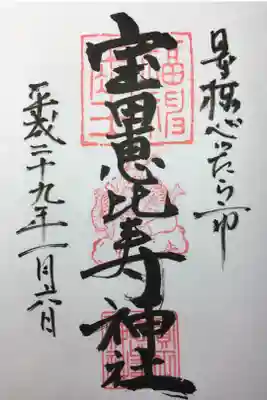 日本橋べったら市
宝田恵比寿神社
平成二十九年一月六日